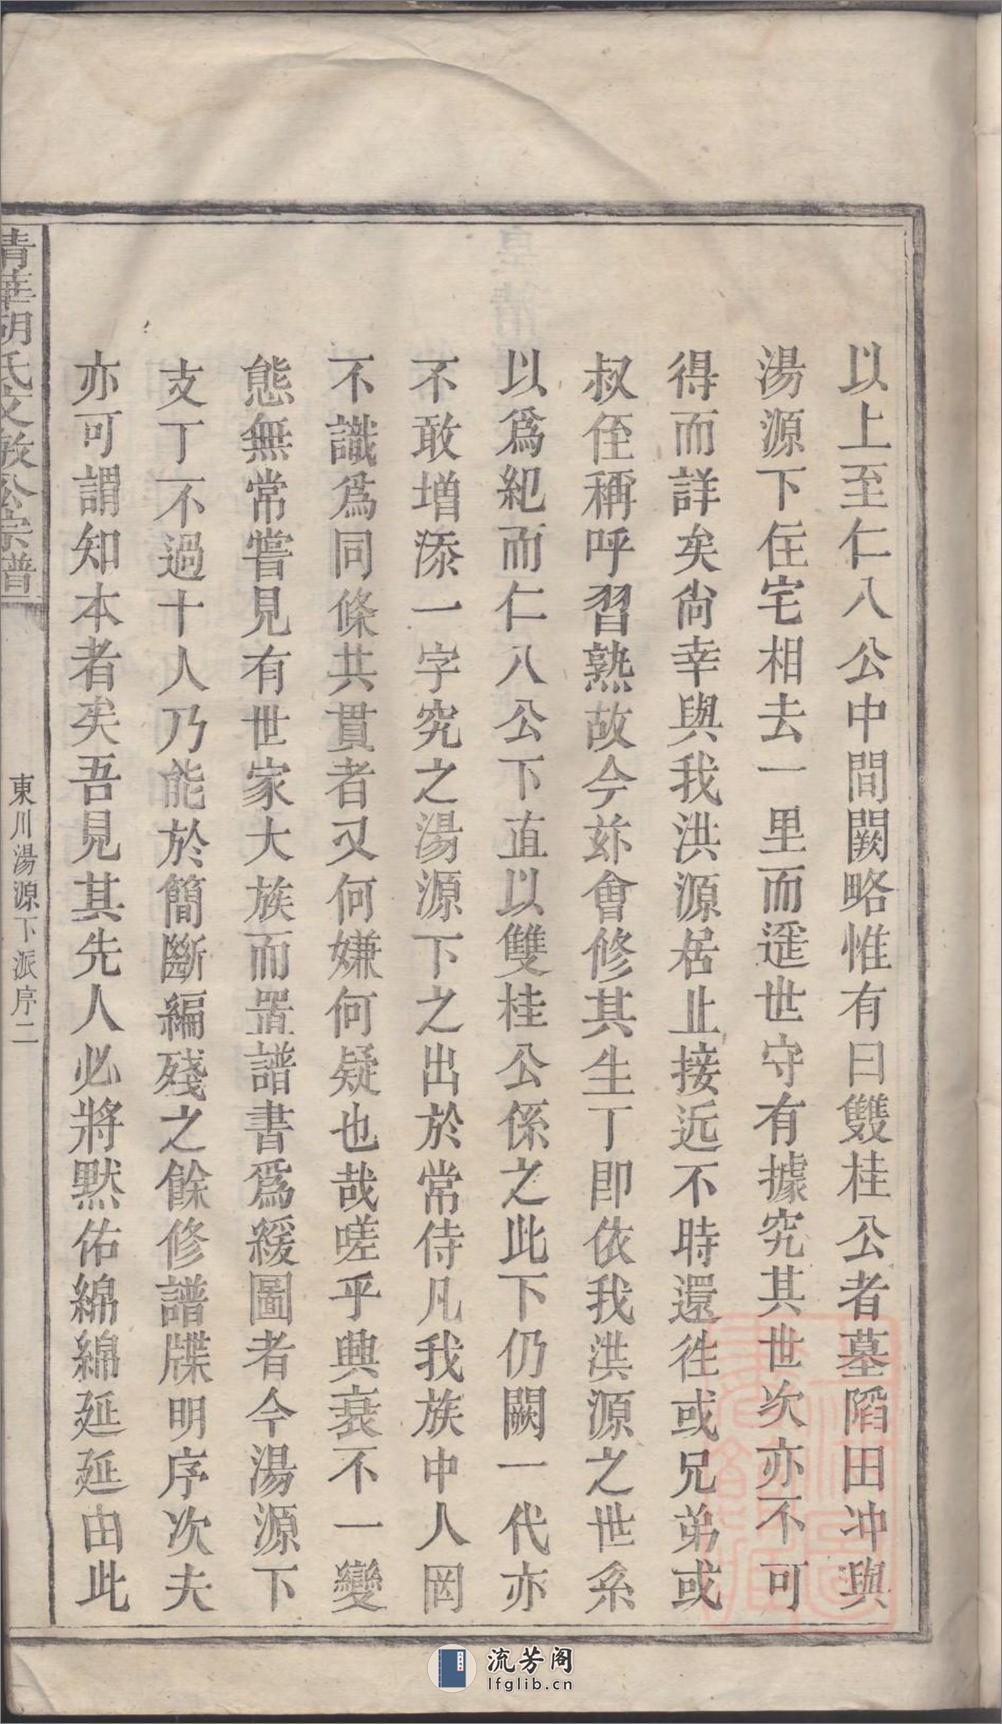 以上至仁八公中間闕略惟有曰雙桂公者墓陷田冲與
湯源下住宅相去一里而遥世守有據究其世次亦不可
得而詳矣尙幸與我洪源居止接近不時還徃或兄弟或
叔侄稱呼習熟故今茲會修其生丁即依我洪源之世系
以爲紀而仁八公下直以雙桂公係之此下仍闕一代亦
不敢增添一字究之湯源下之出於常侍凡我族中人罔
不識爲同條共貫者又何嫌何疑也哉嗟乎興衰不一變
態無常嘗見有世家大族而置譜書爲緩圖者今湯源下
支丁不過十人乃能於簡斷編殘之餘修譜牒明序次夫
亦可謂知本者矣吾見其先人必將默佑綿綿延延由此
清華胡氏文敏公宗譜
東川湯源下派序二
流芳阁
lfglib.cn